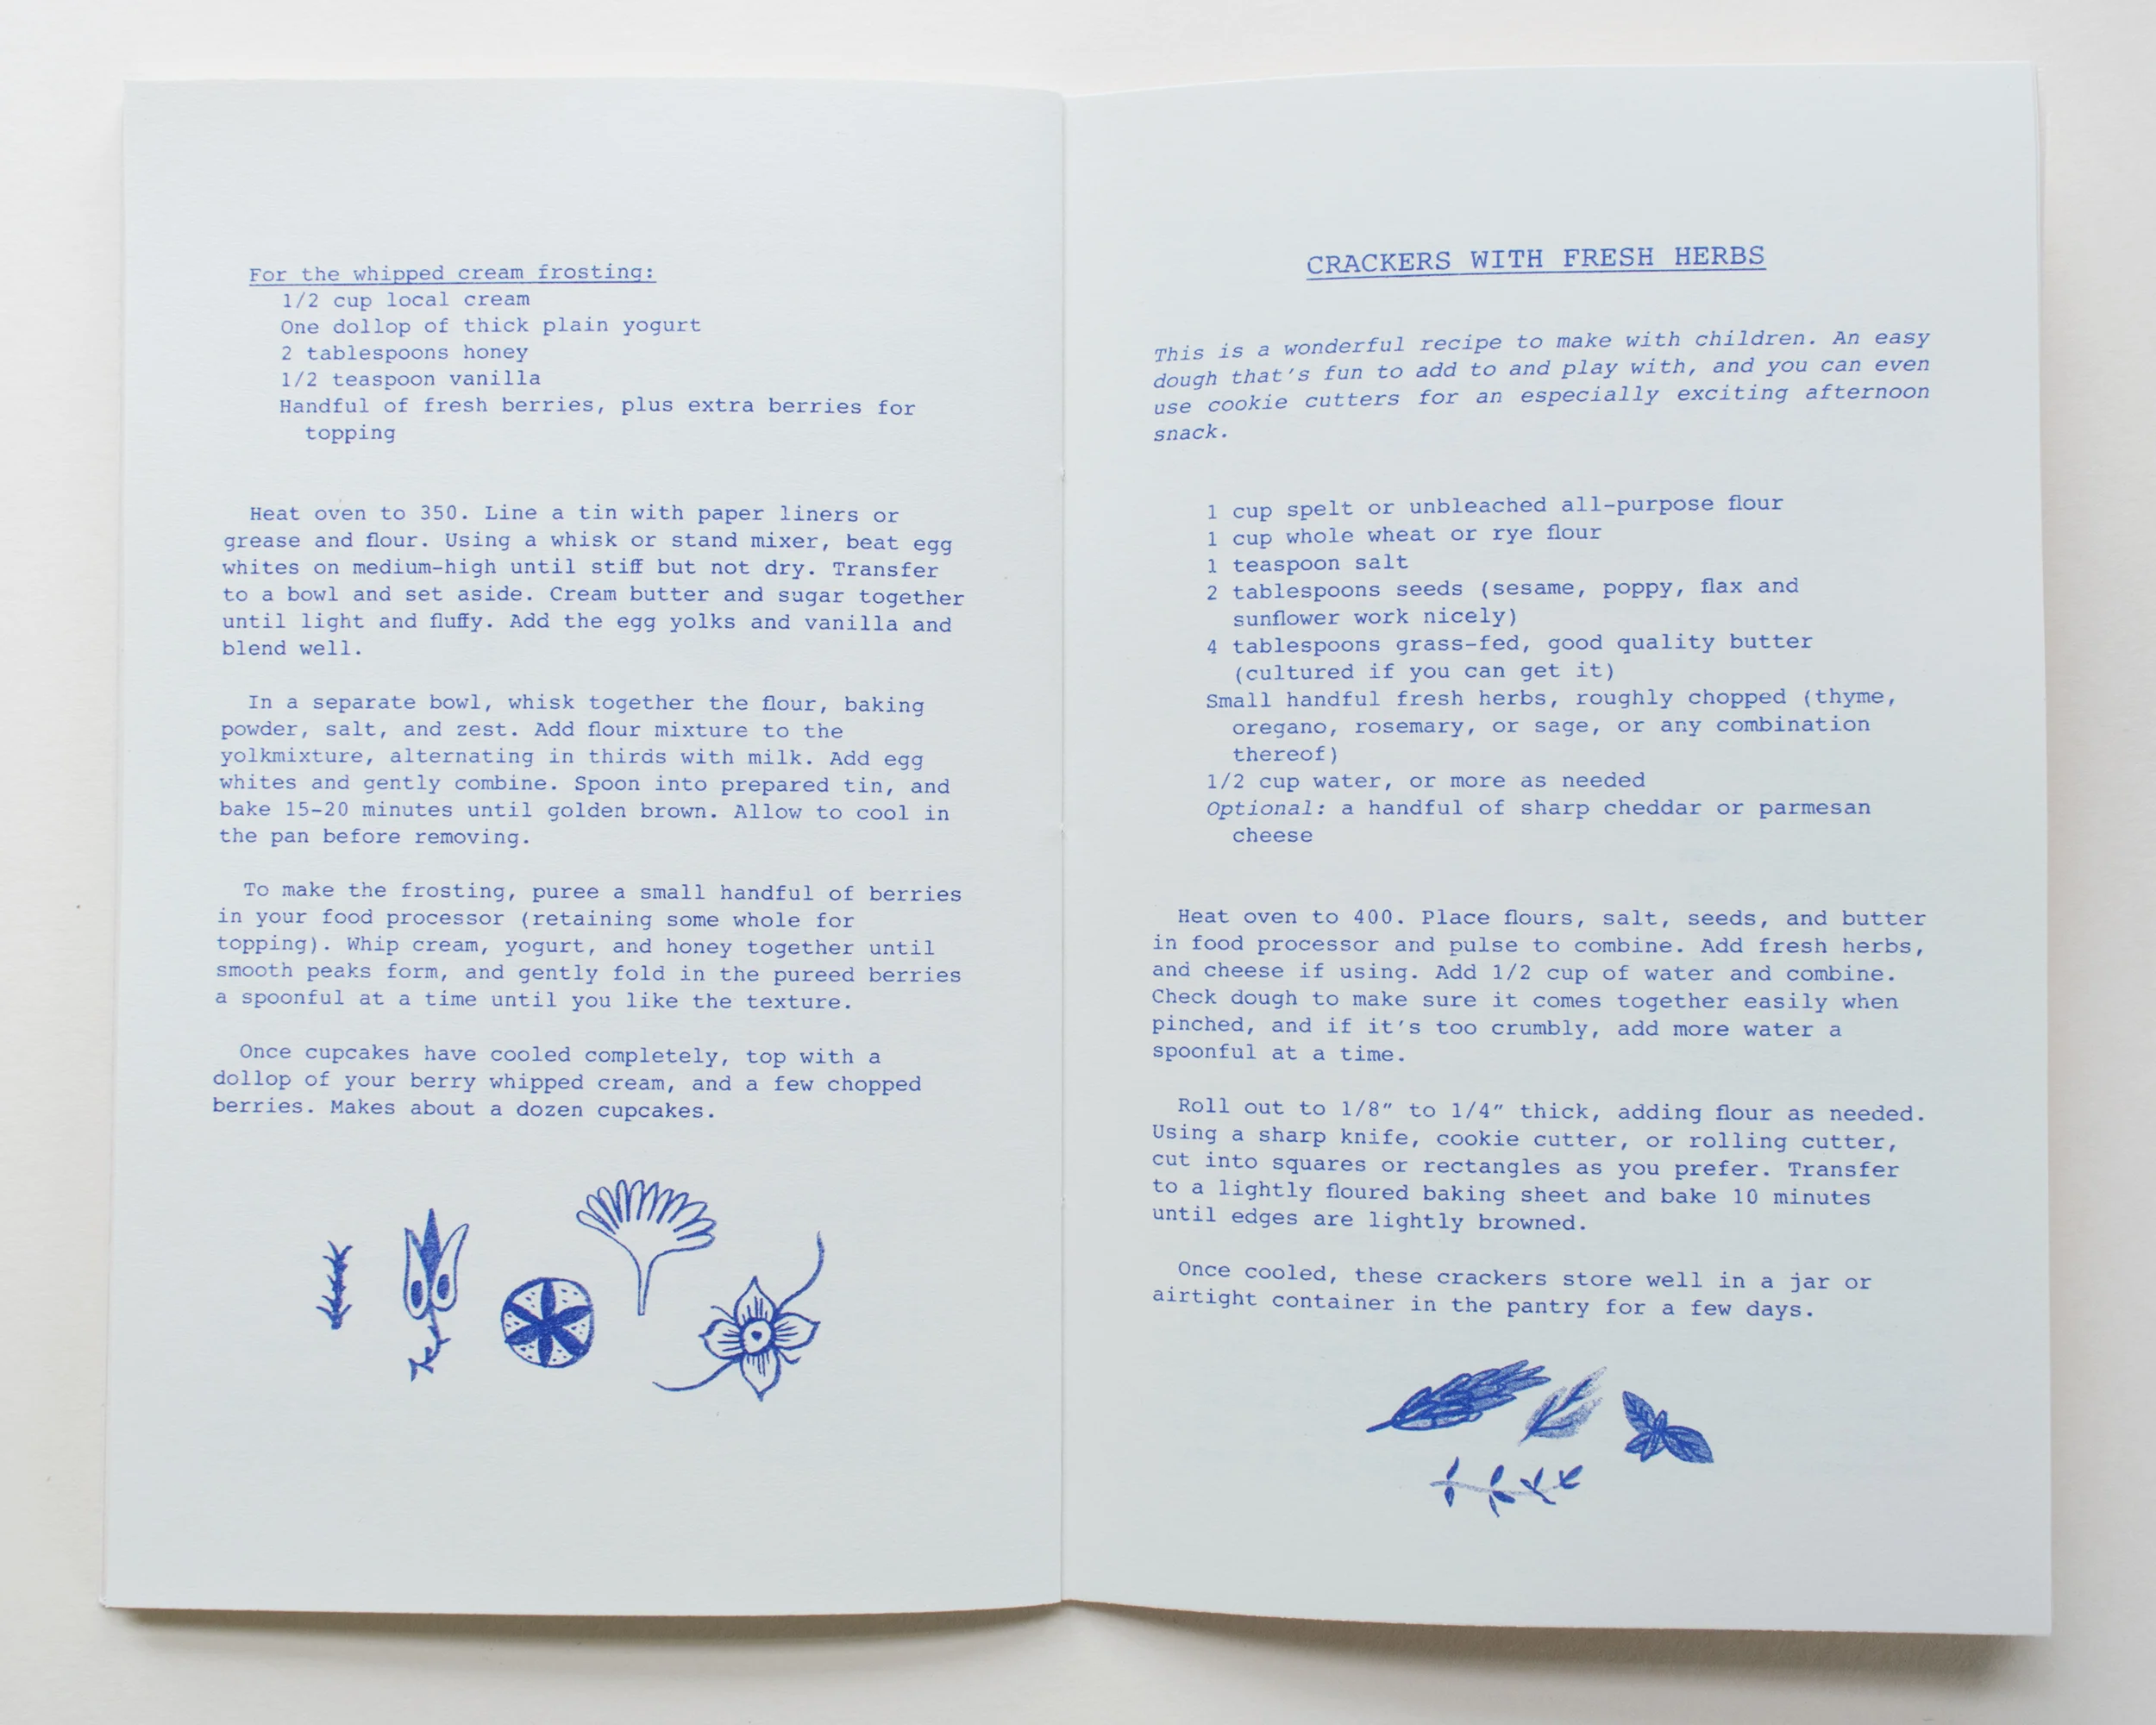 For the whipped cream frosting:
1/2 cup local cream
One dollop of thick plain yogurt
2 tablespoons honey
1/2 teaspoon vanilla
Handful of fresh berries, plus extra berries for
topping
Heat oven to 350. Line a tin with paper liners or
grease and flour. Using a whisk or stand mixer, beat egg
whites on medium-high until stiff but not dry. Transfer
to a bowl and set aside. Cream butter and sugar together
until light and fluffy. Add the egg yolks and vanilla and
blend well.
In a separate bowl, whisk together the flour, baking
powder, salt, and zest. Add flour mixture to the
yolkmixture, alternating in thirds with milk. Add egg
whites and gently combine. Spoon into prepared tin, and
bake 15-20 minutes until golden brown. Allow to cool in
the pan before removing.
To make the frosting, puree a small handful of berries
in your food processor (retaining some whole for
topping). Whip cream, yogurt, and honey together until
smooth peaks form, and gently fold in the pureed berries
a spoonful at a time until you like the texture.
Once cupcakes have cooled completely, top with a
dollop of your berry whipped cream, and a few chopped
berries. Makes about a dozen cupcakes.
CRACKERS WITH FRESH HERBS
This is a wonderful recipe to make with children. An easy
dough that's fun to add to and play with, and you can even
use cookie cutters for an especially exciting afternoon
snack.
1 cup spelt or unbleached all-purpose flour
1 cup whole wheat or rye flour
1 teaspoon salt
2 tablespoons seeds (sesame, poppy, flax and
sunflower work nicely)
4 tablespoons grass-fed, good quality butter
(cultured if you can get it)
Small handful fresh herbs, roughly chopped (thyme,
oregano, rosemary, or sage, or any combination
thereof)
1/2 cup water, or more as needed
Optional: a handful of sharp cheddar or parmesan
cheese
Heat oven to 400. Place flours, salt, seeds, and butter
in food processor and pulse to combine. Add fresh herbs,
and cheese if using. Add 1/2 cup of water and combine.
Check dough to make sure it comes together easily when
pinched, and if it's too crumbly, add more water a
spoonful at a time.
Roll out to 1/8" to 1/4" thick, adding flour as needed.
Using a sharp knife, cookie cutter, or rolling cutter,
cut into squares or rectangles as you prefer. Transfer
to a lightly floured baking sheet and bake 10 minutes
until edges are lightly browned.
Once cooled, these crackers store well in a jar or
airtight container in the pantry for a few days.